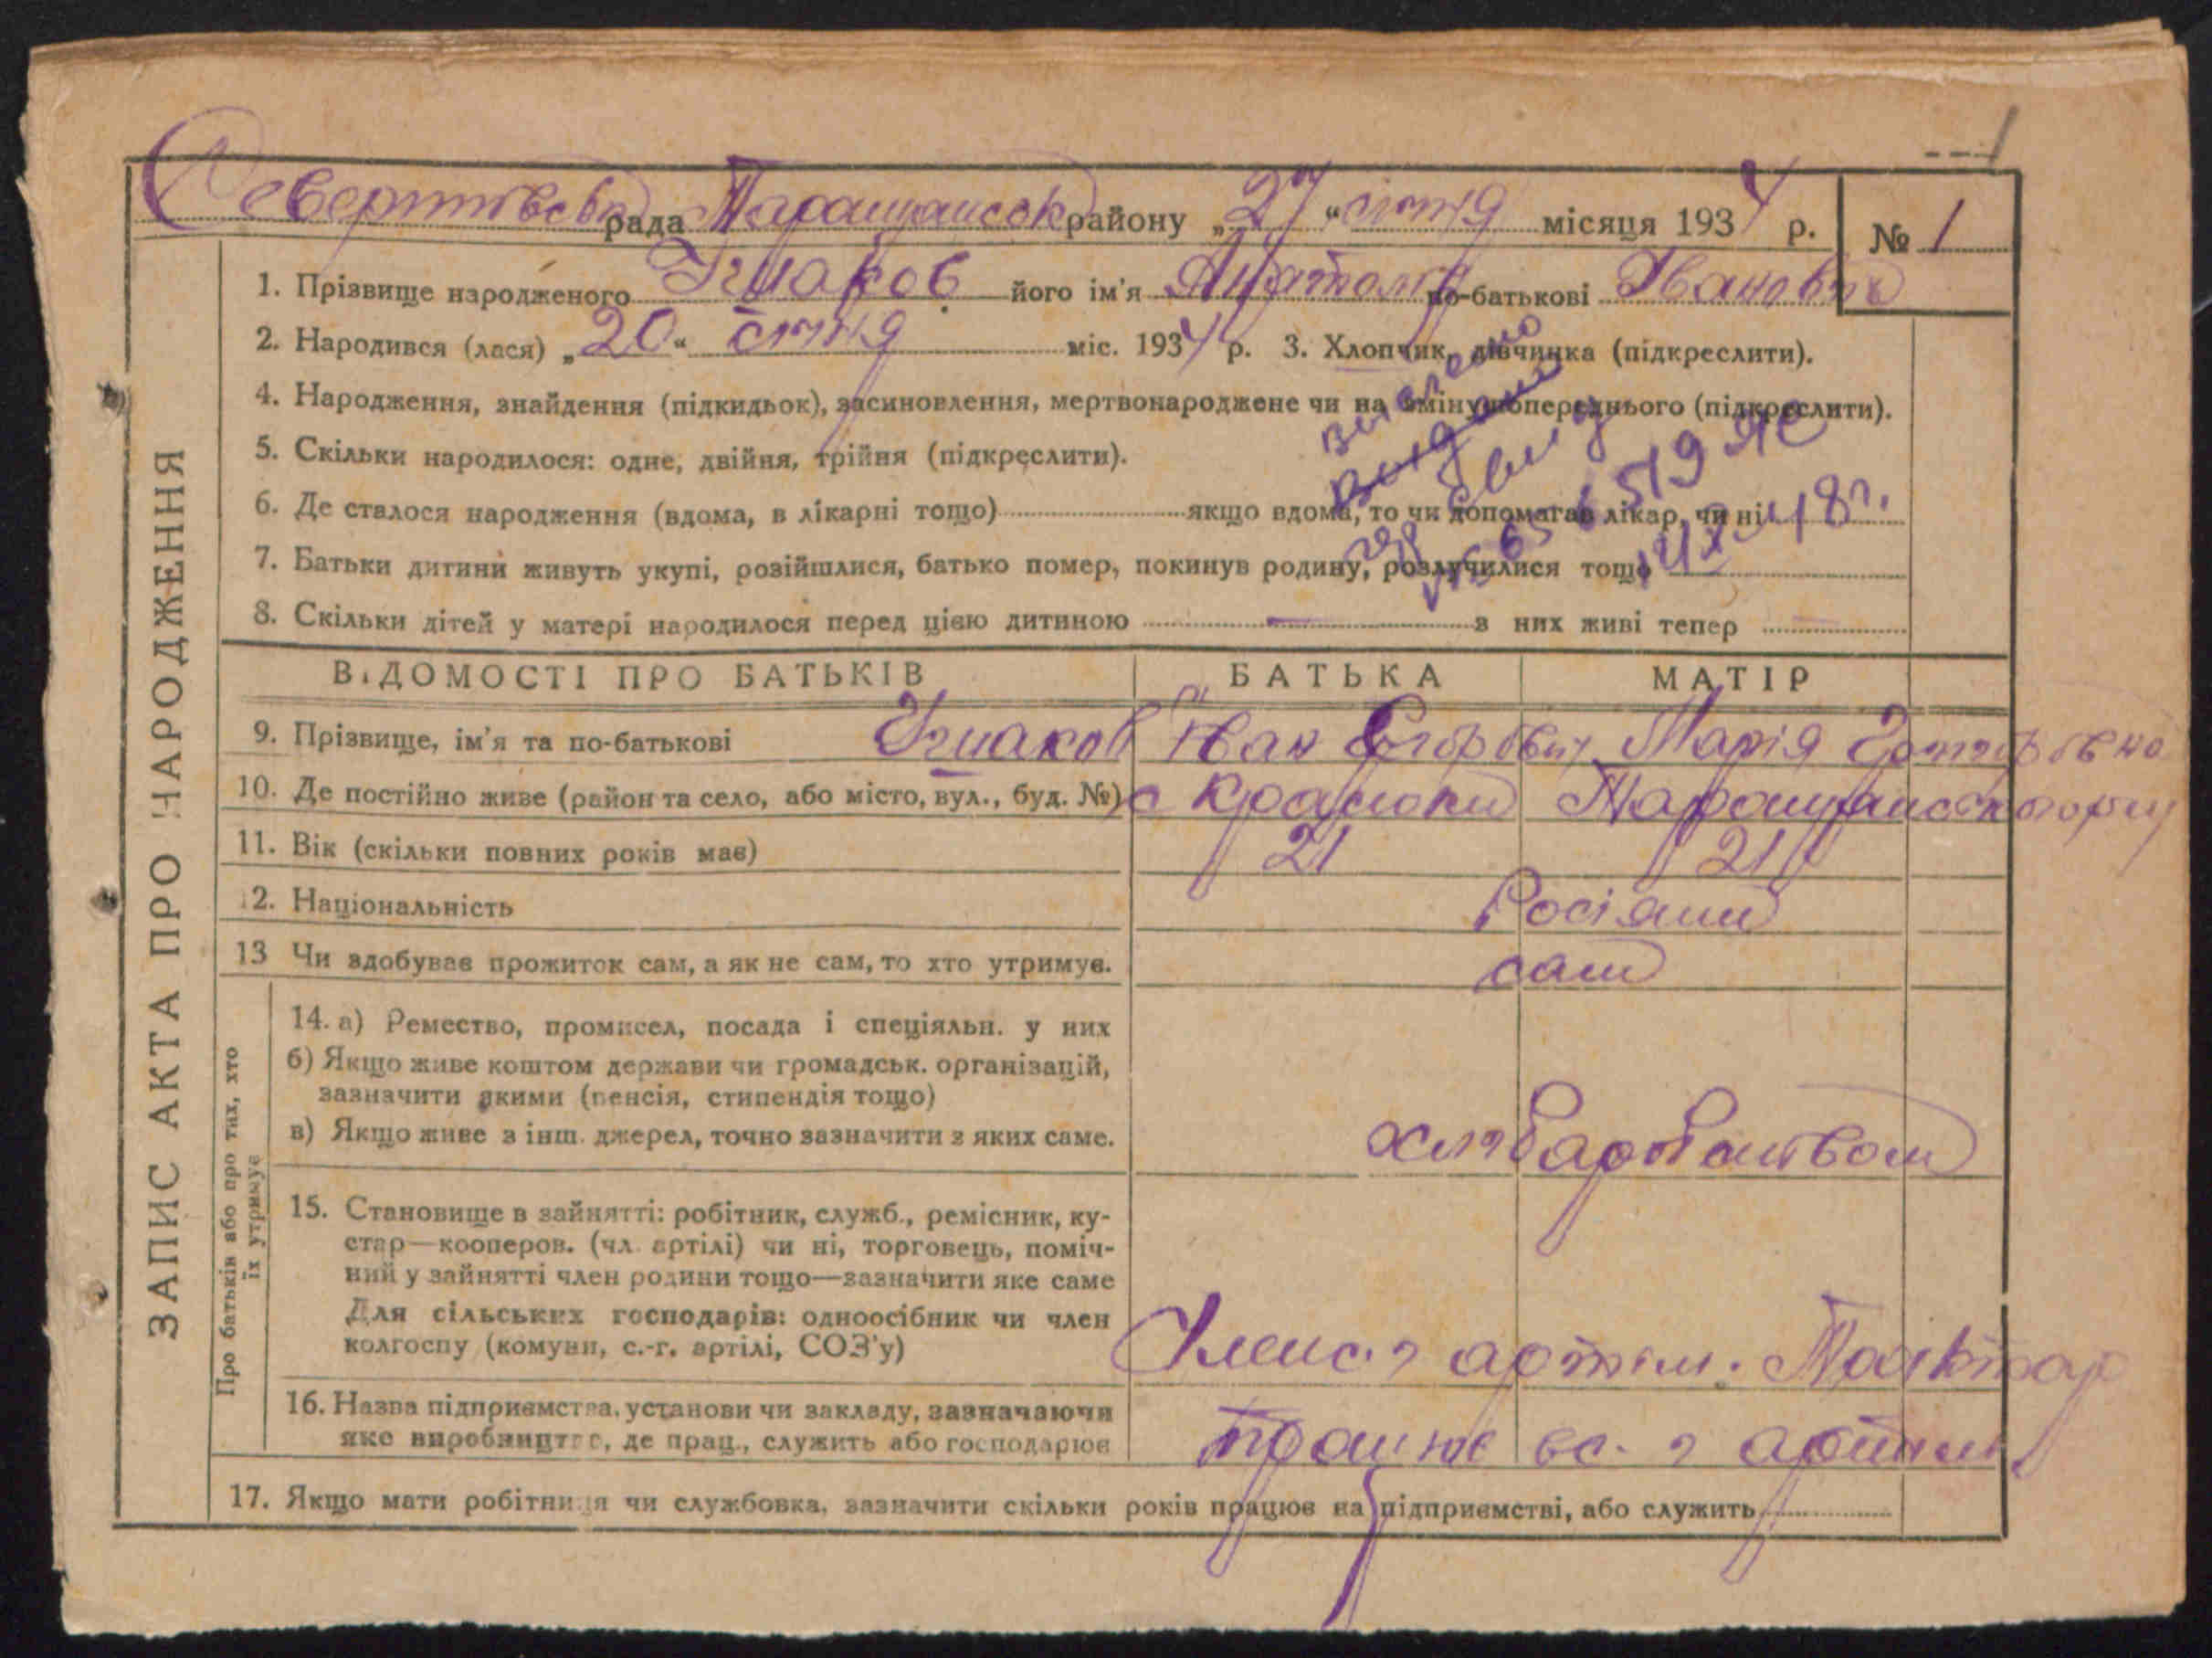 рада Таращанськ району „27“ січня місяця 1934 р. № 1
1. Прізвище народженого Ушаков його ім'я Анатолій по-батькові Іванович
2. Народився (лася) „20“ січня міс. 1934 р. 3. Хлопчик, дівчинка (підкреслити).
4. Народження, знайдення (підкидьок), засиновлення, мертвонароджене чи на зміну попереднього (підкреслити).
5. Скільки народилося: одне, двійня, трійня (підкреслити).
6. Де сталося народження (вдома, в лікарні тощо) якщо вдома, то чи допомагав лікар, чи ні
7. Батьки дитини живуть укупі, розійшлися, батько помер, покинув родину, розлучилися тощо
8. Скільки дітей у матері народилося перед цією дитиною — з них живі тепер —
48 г.
ЗАПИС АКТА ПРО НАРОДЖЕННЯ
ВІДОМОСТІ ПРО БАТЬКІВ БАТЬКА МАТІР
9. Прізвище, ім'я та по-батькові Ушаков Іван Марія
10. Де постійно живе (район та село, або місто, вул., буд. №) с
11. Вік (скільки повних років має) 21 21
12. Національність Росіяни
13 Чи здобуває прожиток сам, а як не сам, то хто утримує. сам
Про батьків або про тих, хто
їх утримує
14. а) Ремество, промисел, посада і спеціяльн. у них
б) Якщо живе коштом держави чи громадськ. організацій,
зазначити якими (пенсія, стипендія тощо)
в) Якщо живе з інш. джерел, точно зазначити з яких саме.
15. Становище в зайнятті: робітник, служб., ремісник, ку-
стар—кооперов. (чл. артілі) чи ні, торговець, поміч-
ний у зайнятті член родини тощо—зазначити яке саме
Для сільських господарів: одноосібник чи член
колгоспу (комуни, с.-г. артілі, СОЗ'у)
16. Назва підприємства, установи чи закладу, зазначаючи
яке виробництво, де прац., служить або господарює
17. Якщо мати робітниця чи службовка, зазначити скільки років працює на підприємстві, або служить